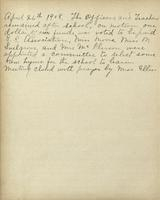 April 26th 1908. The Officers and Teachers
remained after school, on motion one
dollar & six cents was voted to be paid
S. S. Association, Miss Morse Miss M.
and Mrs. Mc Pherson were
appointed a committee to select some
new hymns for the school to learn
Meeting closed with prayer by Miss Ellis